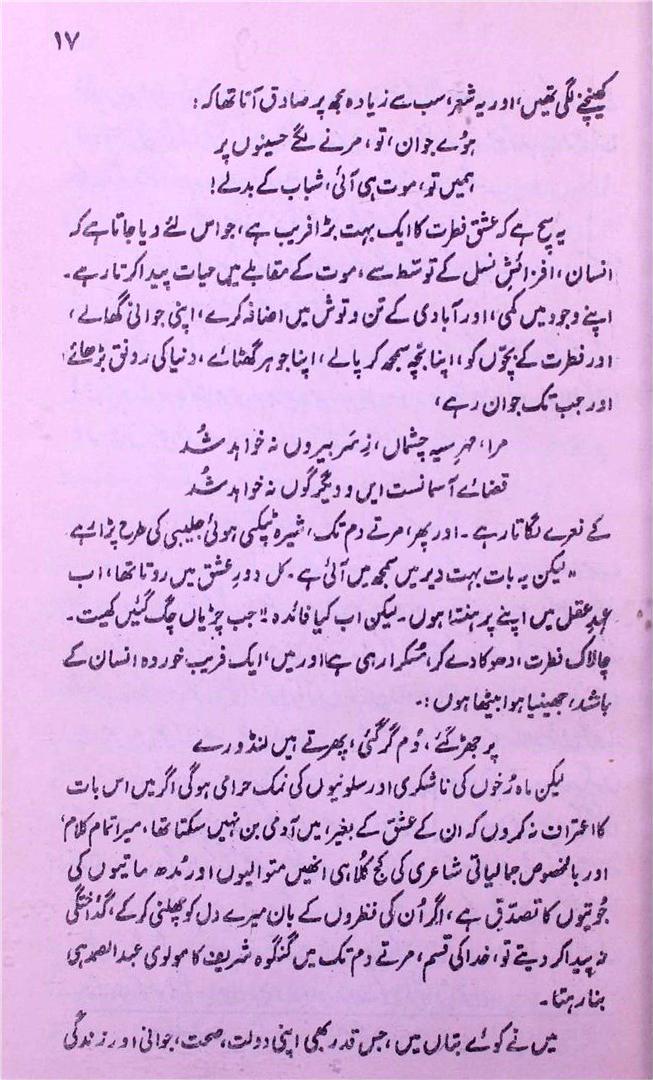 ۱۷
کھینچنے لگی تھیں، اور یہ شعر، سب سے زیادہ مجھ پر صادق آتا تھا کہ:
ہوئے جوان، تو، مرنے لگے حسینوں پر
ہمیں تو، موت ہی آئی، شباب کے بدلے!
یہ سچ ہے کہ عشق فطرت کا ایک بہت بڑا فریب ہے، جو اس لئے دیا جاتا ہے کہ
انسان، افزائشِ نسل کے توسّط سے، موت کے مقابلے میں حیات پیدا کرتا رہے۔
اپنے وجود میں کمی، اور آبادی کے تن و توش میں اضافہ کرے، اپنی جوانی گھالے،
اور فطرت کے بچّوں کو، اپنا بچّہ سمجھ کر پالے، اپنا جوہر گھٹائے، دنیا کی رونق بڑھائے،
اور جب تک جوان رہے،
مرا، مہرِ سیہ چشماں، زِسَر بیروں نہ خواہد شُد
قضائے آسمانست ایں و دیگرگوں نہ خواہد شُد
کے نعرے لگاتا رہے۔ اور پھر، مرتے دم تک، شیرہ ٹپکی ہوئی جلیبی کی طرح پڑا رہے
،، لیکن یہ بات بہت دیر میں سمجھ میں آئی ہے۔ کل دورِ عشق میں روتا تھا، اب
عہدِ عقل میں اپنے پر ہنستا ہوں۔ لیکن اب کیا فائدہ !! جب چڑیاں چگ گئیں کھیت۔
چالاک فطرت، دھوکا دے کر، مُسکرا رہی ہے، اور میں، ایک فریب خوردہ انسان کے
باشد، جھینپا ہوا بیٹھا ہوں:۔
پر جھڑ گئے، دُم گر گئی، پھرتے ہیں لنڈورے
لیکن ماہ رُخوں کی ناشکری اور سلونیوں کی نمک حرامی ہوگی اگر میں اس بات
کا اعتراف نہ کروں کہ ان کے عشق کے بغیر، میں آدمی بن نہیں سکتا تھا، میرا تمام کلام،
اور بالخصوص جمالیاتی شاعری کی کج کُلاہی انھیں متوالیوں اور مُدھ ماتیوں کی
جُوتیوں کا تصدّق ہے، اگر اُن کی نظروں کے بان میرے دل کو چھلنی کر کے، گداختگی
نہ پیدا کر دیتے تو، خدا کی قسم، مرتے دم تک میں گنگوہ شریف کا مولوی عبدالصمد ہی
بنا رہتا۔
میں نے کوئے بتاں میں، جس قدر بھی اپنی دولت، صحت، جوانی اور زندگی